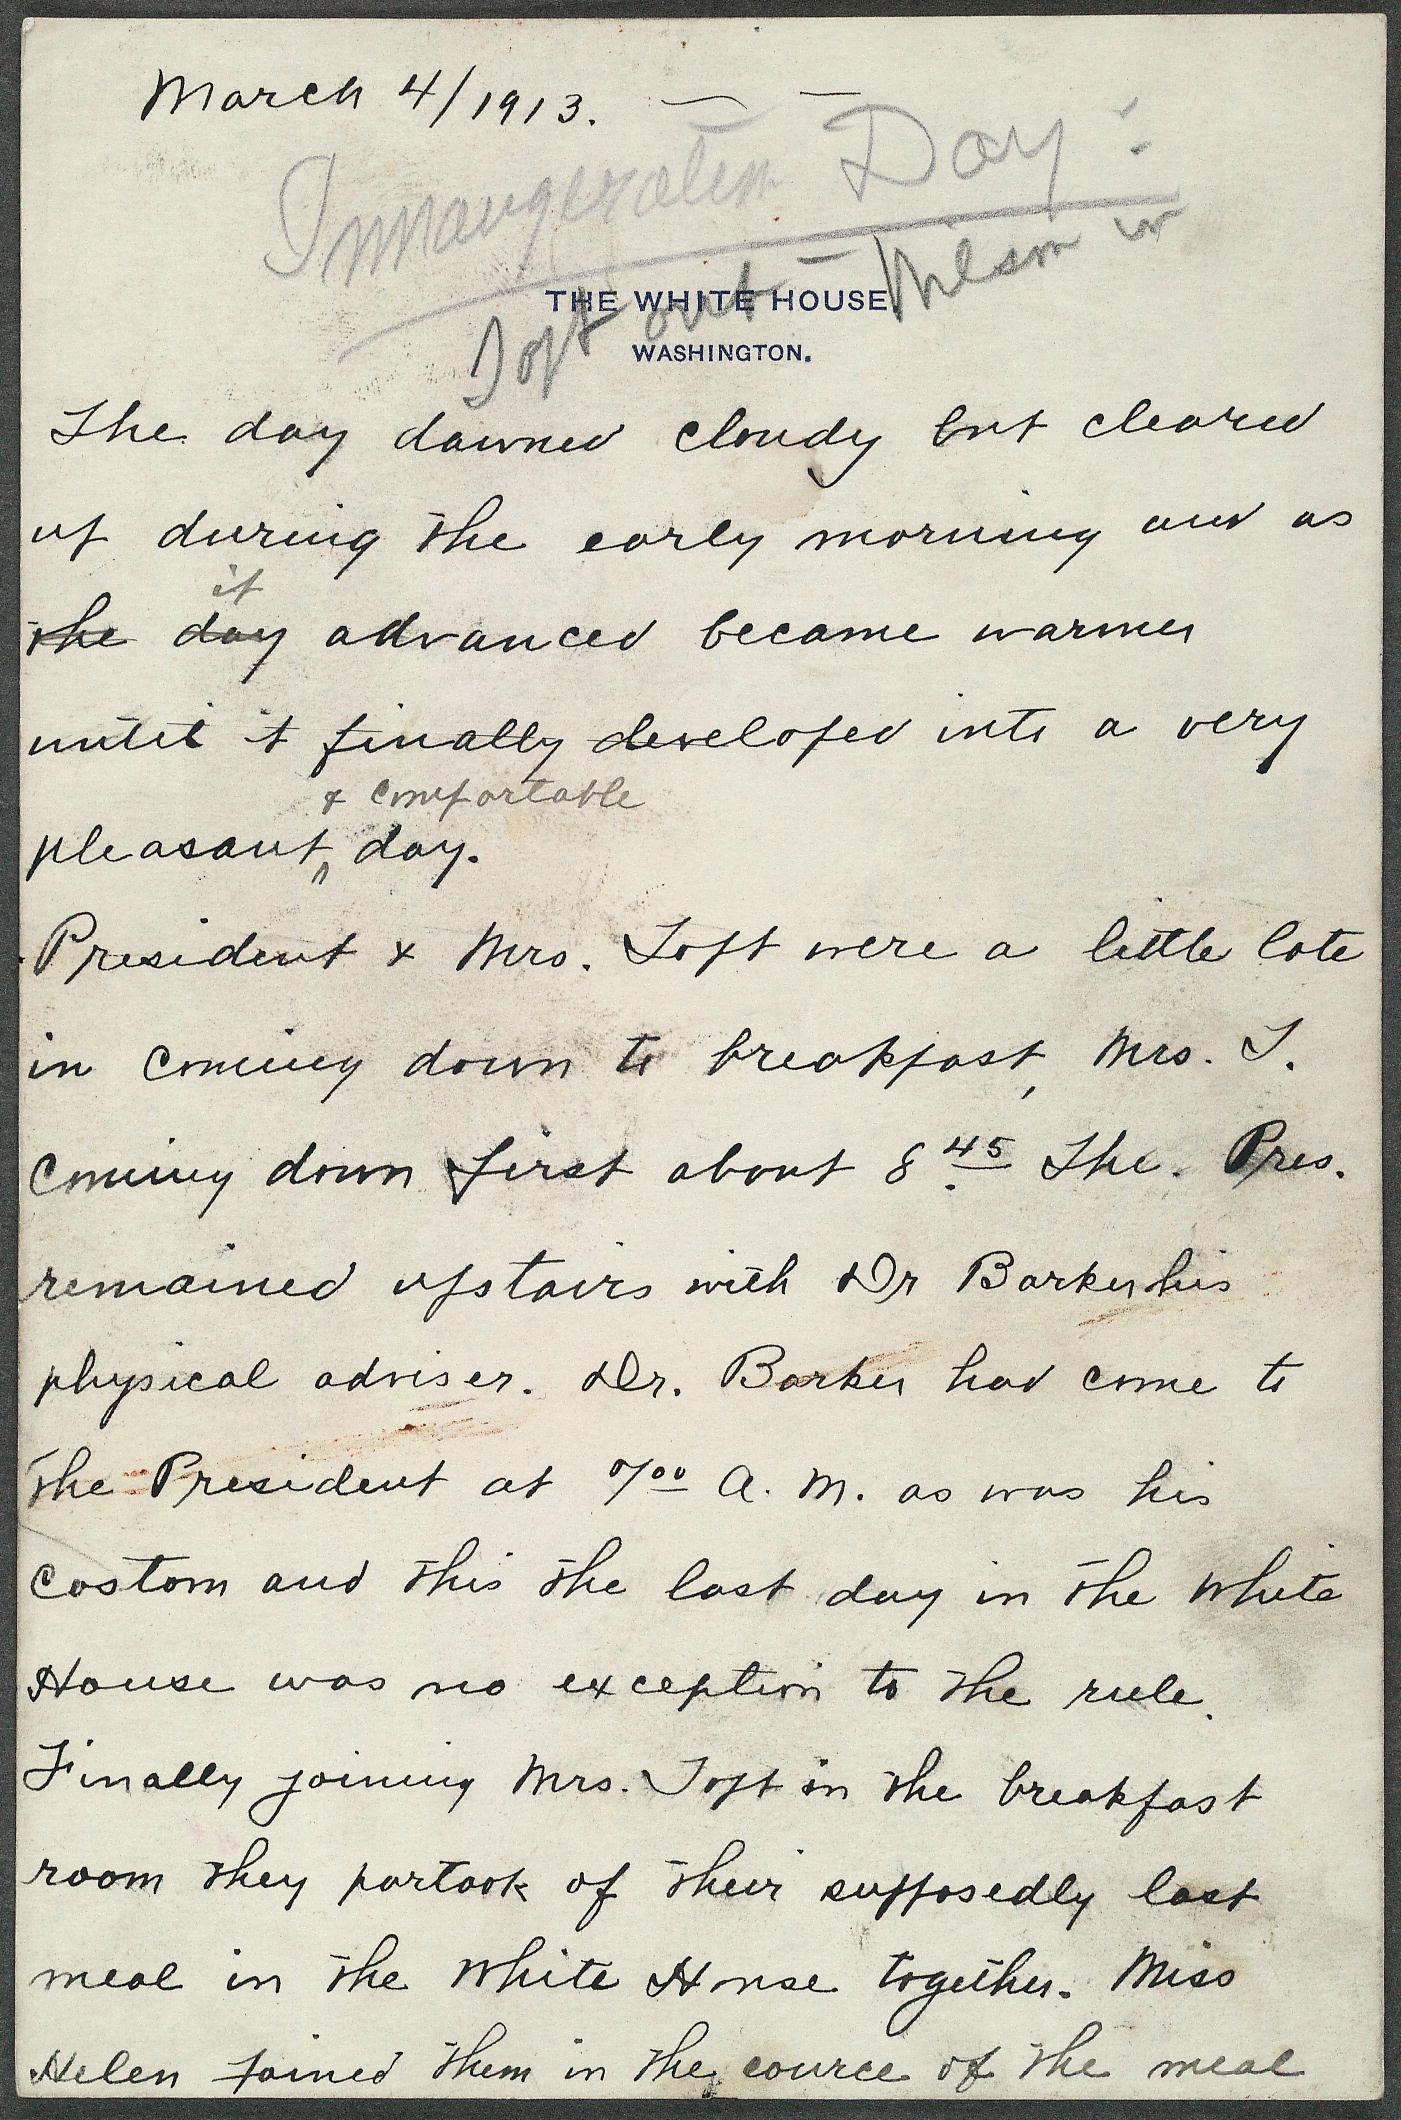 March 4/1913. — —
Innaugeration Day:
Taft out — Wilson in
THE WHITE HOUSE
WASHINGTON.
The day dawned cloudy but cleared
up during the early morning and as
it
the day advanced became warmer
until it finally developed into a very
& comfortable
pleasant ^ day.
President & Mrs. Taft were a little late
in coming down to breakfast, Mrs. T.
coming down first about 8.45 The. Pres.
remained upstairs with Dr Barker his
physical adviser. Dr. Barker had come to
the President at 7 00 A. M. as was his
costom and this the last day in the White
House was no exception to the rule.
Finally joining Mrs. Taft in the breakfast
room they partook of their supposedly last
meal in the White House together. Miss
Helen joined them in the cource of the meal